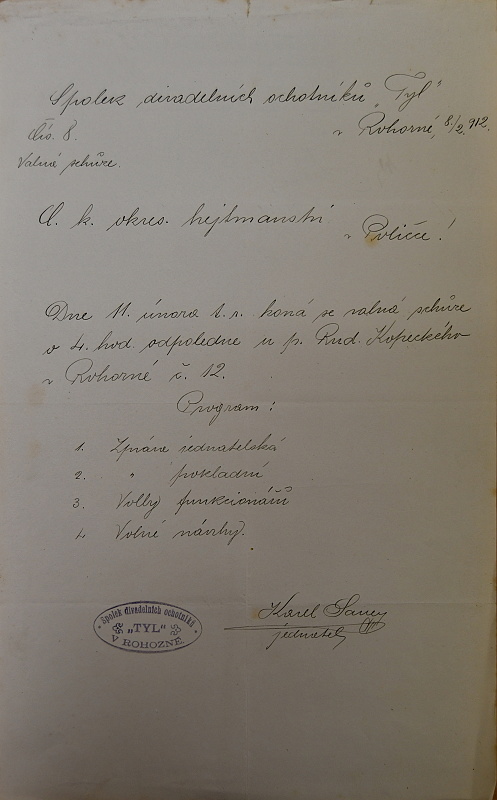 Spolek divadelních ochotníků „Tyl“
v Rohozné, 8./2. 912.
Čís. 8.
Valná schůze.
C. k. okres. hejtmanství
v Poličce!
Dne 11. února t. r. koná se valná schůze
o 4. hod. odpoledne u p. Rud. Kopeckého
v Rohozné č. 12.
Program:
1. Zpráva jednatelská
2. " pokladní
3. Volby funkcionářů
4. Volné návrhy.
Karel
jednatel
Spolek divadelních ochotníků
„TYL“
V ROHOZNÉ.